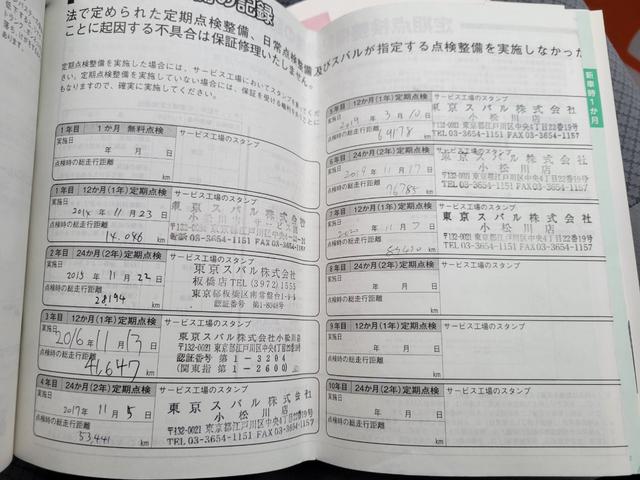 の記録
法で定められた定期点検整備、日常点検整備及びスバルが指定する点検整備を実施しなかった
ことに起因する不具合は保証修理いたしません。
定期点検整備を実施した場合には、サービス工場においてスタンプを
さい。定期点検整備を実施していない場合には、保証を受ける権利を
もなりますので、確実に実施してください。
1年目 1か月 無料点検 サービス工場のスタンプ
実施日
年 月 日
点検時の総走行距離
km
1年目 12か月(1年)定期点検 サービス工場のスタンプ
実施日
2014年 11月 23日
点検時の総走行距離
14,046 km
東京スバル株式会社
電話 03-3654-1151 FAX 03-3654-1157
2年目 24か月(2年)定期点検 サービス工場のスタンプ
実施日
2015年 11月 22日
点検時の総走行距離
28194 km
東京スバル株式会社
板橋店 TEL (3972) 1555
東京都板橋区南常盤台1-4-4
認証番号 第1-8048号
3年目 12か月(1年)定期点検 サービス工場のスタンプ
実施日
2016年 11月 13日
点検時の総走行距離
41,647 km
東京スバル株式会社小松川店
〒132-0021 東京都江戸川区中央4丁目22番19号
認証番号 第1-3204
(関東指 第1-2600)
4年目 24か月(2年)定期点検 サービス工場のスタンプ
実施日
2017年 11月 5日
点検時の総走行距離
53,441 km
東京スバル株式会社
小松川店
〒132-0021 東京都江戸川区中央4丁目22番19号
TEL 03-3654-1151 FAX 03-3654-1157
5年目 12か月(1年)定期点検 サービス工場のスタンプ
実施日
2019年 3月 10日
点検時の総走行距離
69178 km
東京スバル株式会社
小松川店
〒132-0021 東京都江戸川区中央4丁目22番19号
TEL 03-3654-1151 FAX 03-3654-1157
6年目 24か月(2年)定期点検 サービス工場のスタンプ
実施日
2019年 11月 17日
点検時の総走行距離
76785 km
東京スバル株式会社
小松川店
〒132-0021 東京都江戸川区中央4丁目22番19号
TEL 03-3654-1151 FAX 03-3654-1157
7年目 12か月(1年)定期点検 サービス工場のスタンプ
実施日
2020年 11月 7日
点検時の総走行距離
km
東京スバル株式会社
小松川店
〒132-0021 東京都江戸川区中央4丁目22番19号
TEL 03-3654-1151 FAX 03-3654-1157
8年目 24か月(2年)定期点検 サービス工場のスタンプ
実施日
年 月 日
点検時の総走行距離
km
9年目 12か月(1年)定期点検 サービス工場のスタンプ
実施日
年 月 日
点検時の総走行距離
km
10年目 24か月(2年)定期点検 サービス工場のスタンプ
実施日
年 月 日
点検時の総走行距離
km
新車時1か月